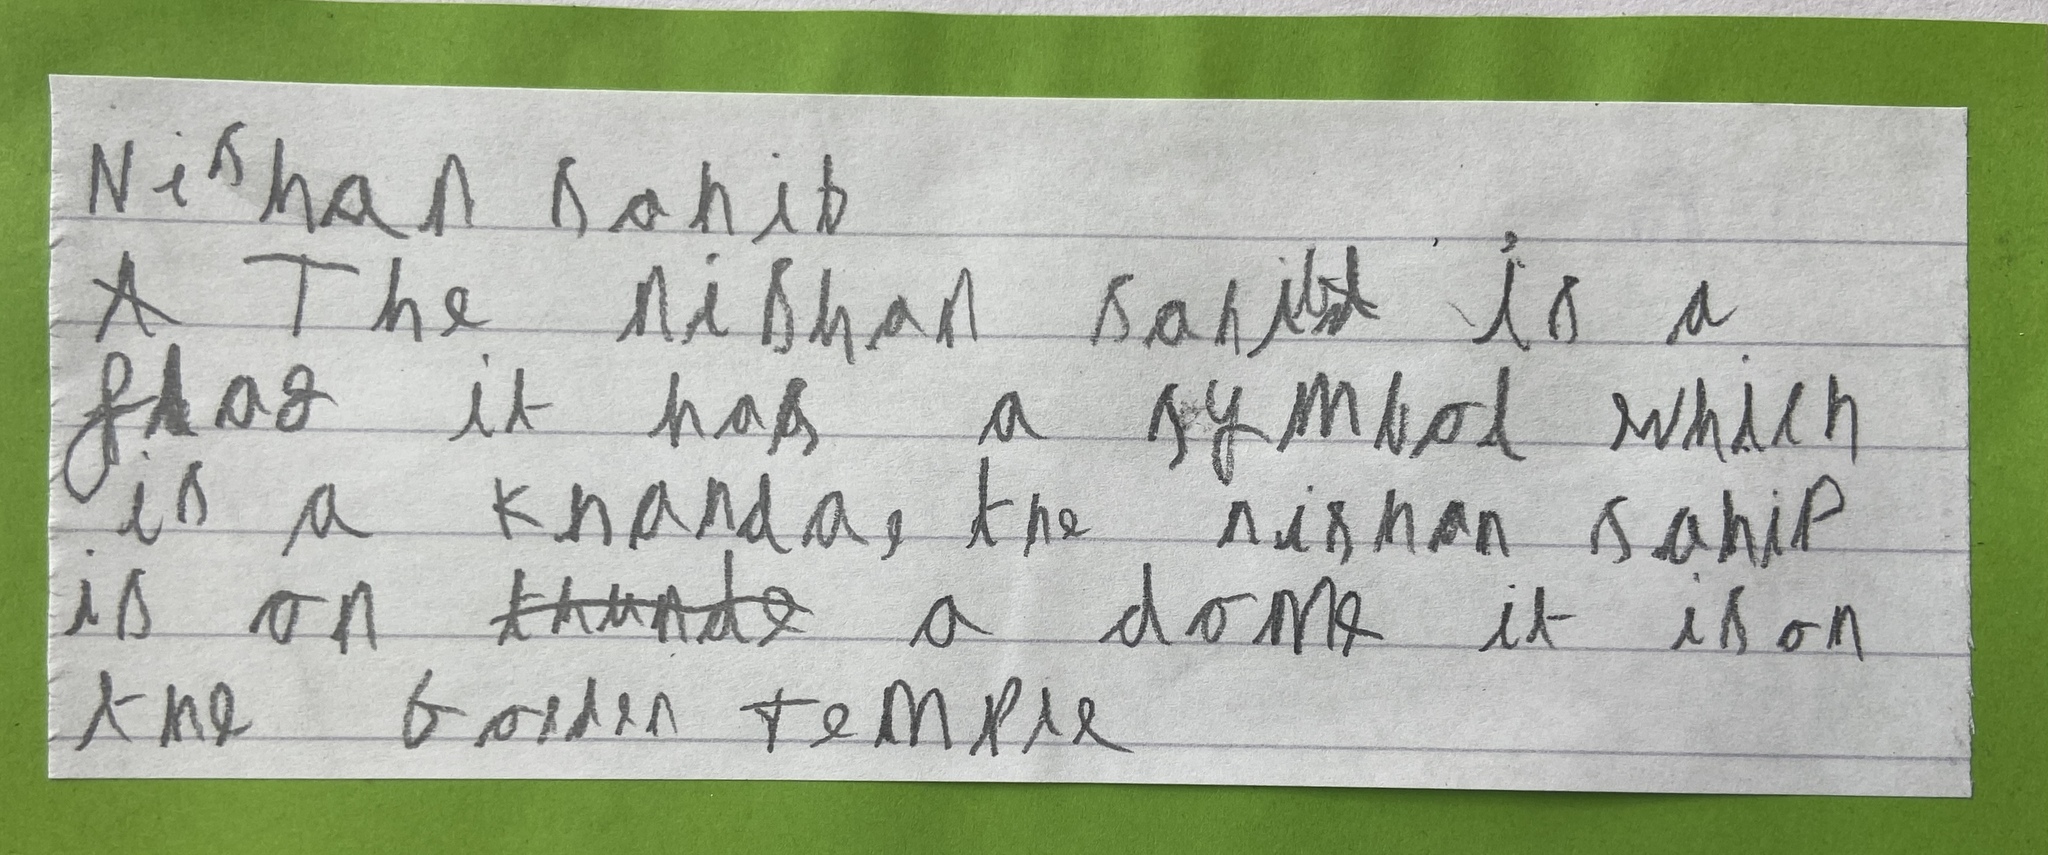 Nishan sahib
A The nishan sahib is a
flag it has a symbol which
is a khanda, the nishan sahip
is on thunde a dome it is on
the Golden temple